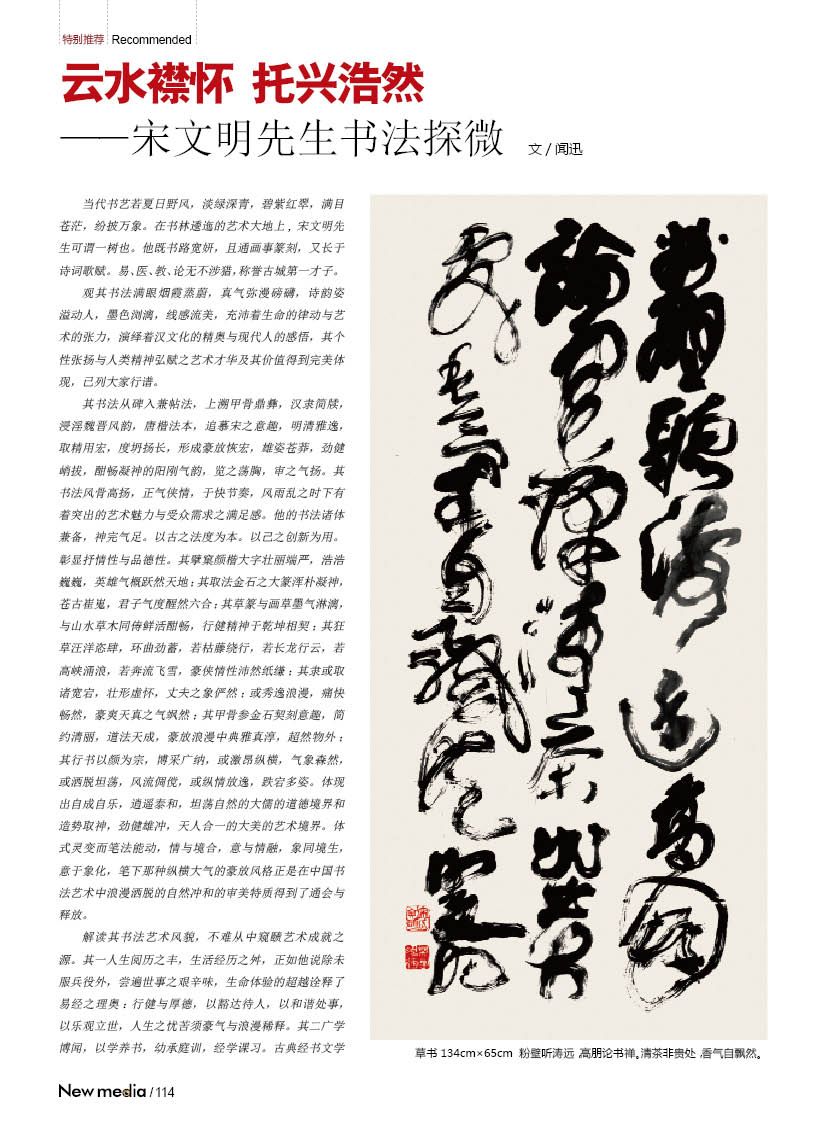 特别推荐 Recommended
云水襟怀 托兴浩然
——宋文明先生书法探微 文 / 闻迅
当代书艺若夏日野风，淡绿深青，碧紫红翠，满目
苍茫，纷披万象。在书林逶迤的艺术大地上，宋文明先
生可谓一树也。他既书路宽妍，且通画事篆刻，又长于
诗词歌赋。易、医、教、论无不涉猎，称誉古城第一才子。
观其书法满眼烟霞蒸蔚，真气弥漫磅礴，诗韵姿
溢动人，墨色淋漓，线感流美，充沛着生命的律动与艺
术的张力，演绎着汉文化的精奥与现代人的感悟，其个
性张扬与人类精神弘赋之艺术才华及其价值得到完美体
现，己列大家行谱。
其书法从碑入兼帖法，上溯甲骨鼎彝，汉隶简牍，
浸淫魏晋风韵，唐楷法本，追慕宋之意趣，明清雅逸，
取精用宏，度坍扬长，形成豪放恢宏，雄姿苍莽，劲健
峭拔，酣畅凝神的阳刚气韵，览之荡胸，审之气扬。其
书法风骨高扬，正气侠情，于快节奏，风雨乱之时下有
着突出的艺术魅力与受众需求之满足感。他的书法诸体
兼备，神完气足。以古之法度为本。以己之创新为用。
彰显抒情性与品德性。其擘窠颜楷大字壮丽端严，浩浩
巍巍，英雄气概跃然天地；其取法金石之大篆浑朴凝神，
苍古崔嵬，君子气度醒然六合；其草篆与画草墨气淋漓，
与山水草木同俦鲜活酣畅，行健精神于乾坤相契；其狂
草汪洋恣肆，环曲劲蓄，若枯藤绕行，若长龙行云，若
高峡涌浪，若奔流飞雪，豪侠情性沛然纸缣；其隶或取
诸宽宕，壮形虚怀，丈夫之象俨然；或秀逸浪漫，痛快
畅然，豪爽天真之气飒然；其甲骨参金石契刻意趣，简
约清丽，道法天成，豪放浪漫中典雅真淳，超然物外；
其行书以颜为宗，博采广纳，或激昂纵横，气象森然，
或洒脱坦荡，风流倜傥，或纵情放逸，跌宕多姿。体现
出自成自乐，逍遥泰和，坦荡自然的大儒的道德境界和
造势取神，劲健雄冲，天人合一的大美的艺术境界。体
式灵变而笔法能动，情与境合，意与情融，象同境生，
意于象化，笔下那种纵横大气的豪放风格正是在中国书
法艺术中浪漫洒脱的自然冲和的审美特质得到了通会与
释放。
解读其书法艺术风貌，不难从中窥赜艺术成就之
源。其一人生阅历之丰，生活经历之舛，正如他说除未
服兵役外，尝遍世事之艰辛味，生命体验的超越诠释了
易经之理奥：行健与厚德，以豁达待人，以和谐处事，
以乐观立世，人生之忧苦须豪气与浪漫稀释。其二广学
博闻，以学养书，幼承庭训，经学课习。古典经书文学
草书 134cm×65cm 粉壁听涛远，高朋论书禅。清茶非贵处，香气自飘然。
New media / 114